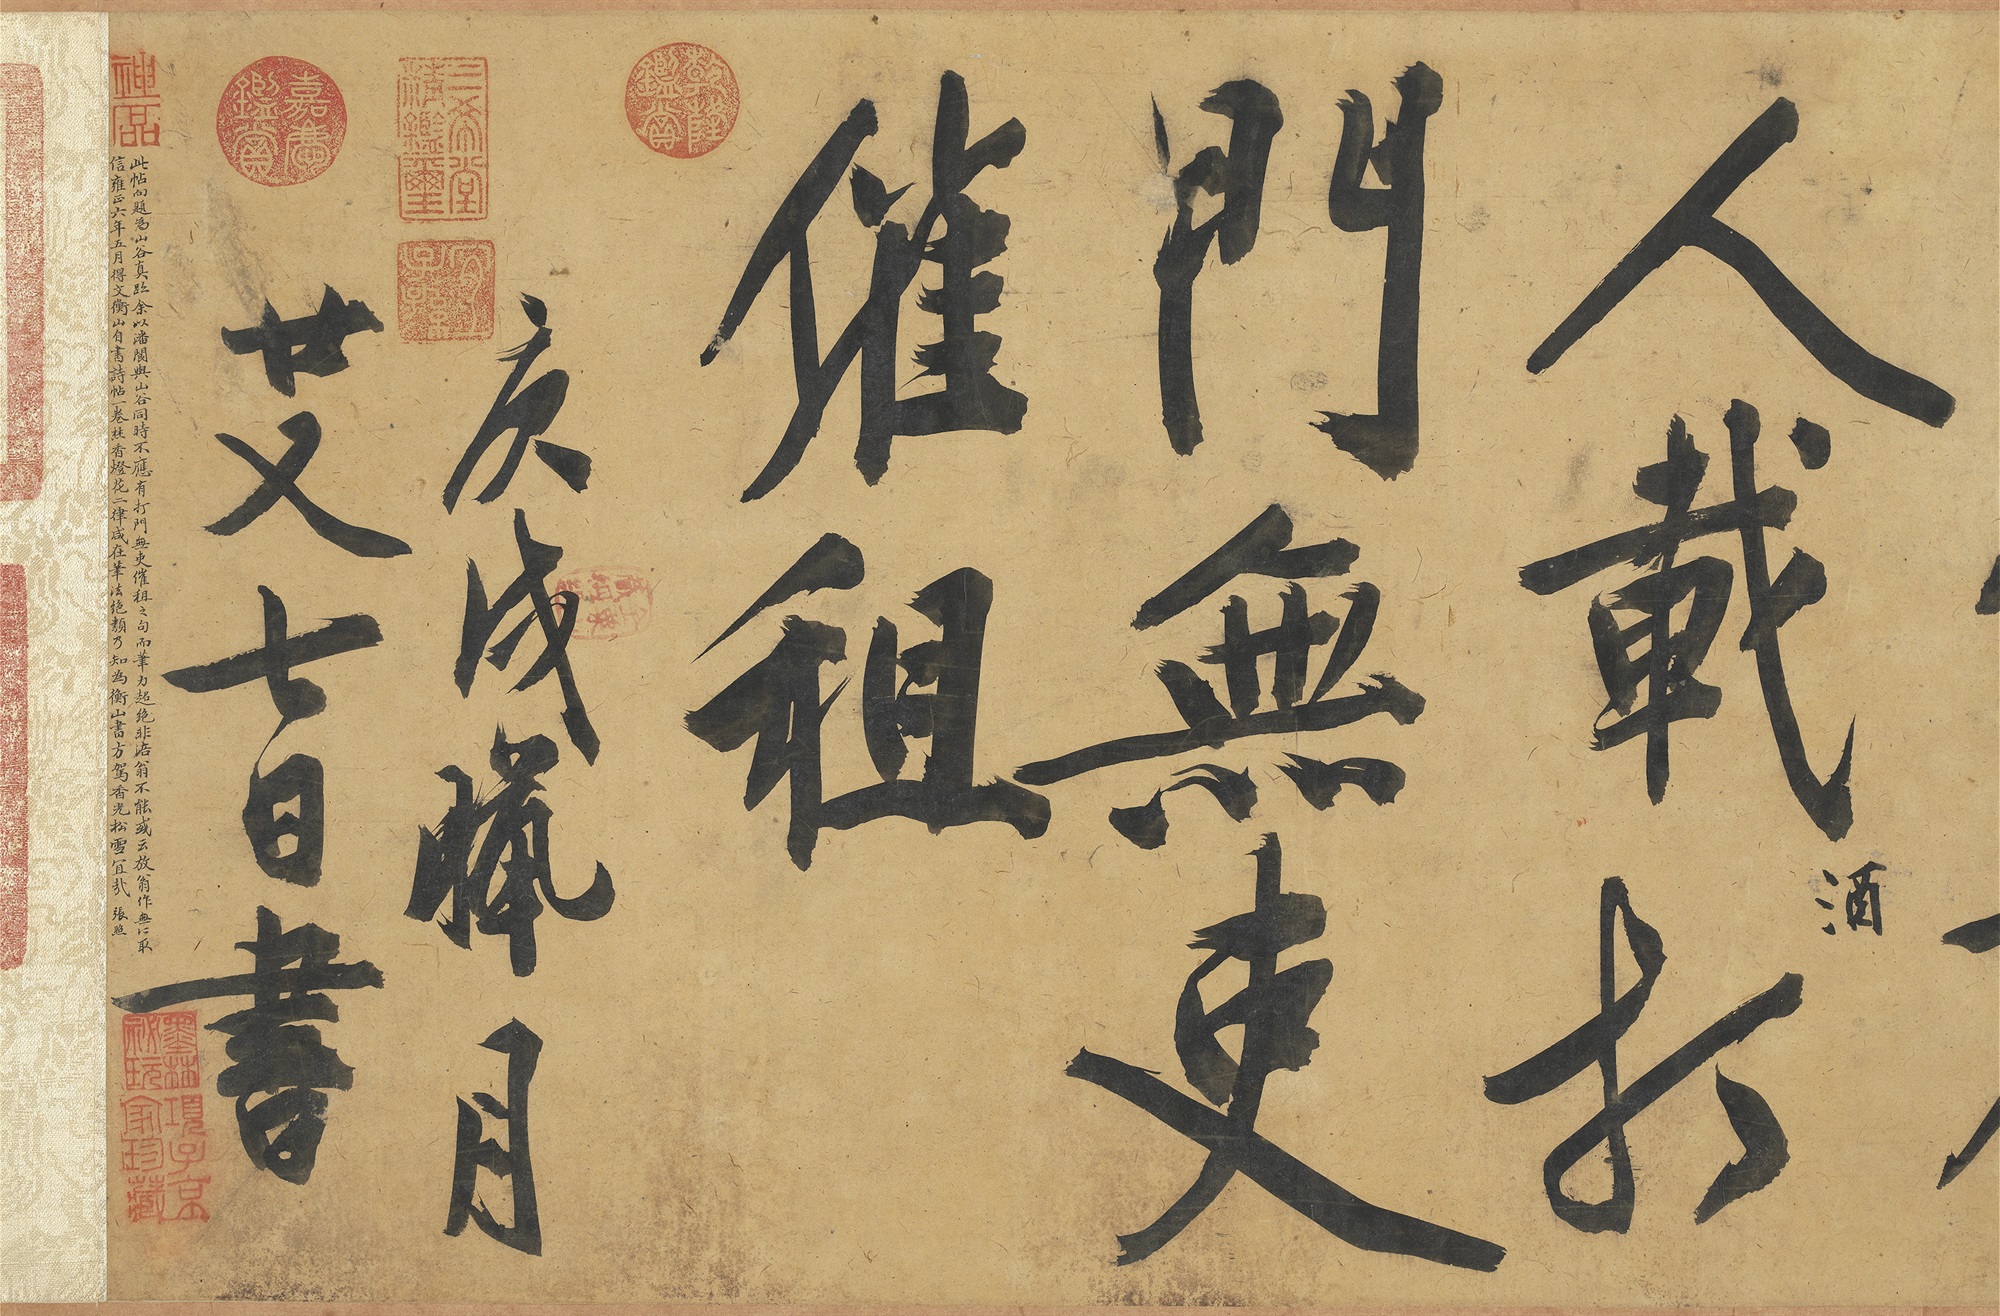 人載打
酒
門無吏
催租
庚戌臘月
廿又七日書
乾隆鑑賞
三希堂精鑑璽
宜子孫
嘉慶鑑賞
神品
此帖向題為山谷真跡余以潘閬與山谷同時不應有打門無吏催租之句而筆力超絕非涪翁不能或云放翁作無以取
信雍正六年五月得文衡山自書詩帖一卷炷香燈花二律咸在筆法絕類乃知為衡山書方駕香光松雪宜哉 張照
墨林秘玩
項子京家珍藏